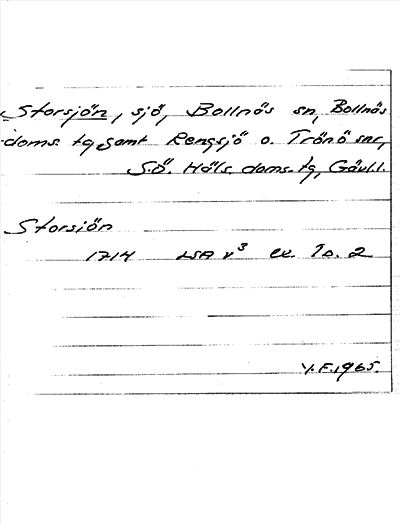 Storsjön, sjö, Bollnäs sn, Bollnäs
doms. tg, samt Rengsjö o. Trönö snr,
S.Ö. Häls. doms. tg, Gävl.l.
Storsjön
1714 LSA v³ ex. 1 o. 2
Y.F. 1965.